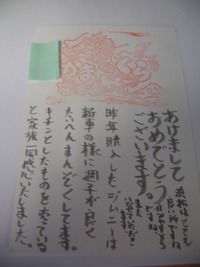 あけまして
おめでとう
ございます。
昨年購入したジムニーは
新車の様に調子が良く
たいへんまんぞくしてます。
キチンとしたものを売っている
と家族一同感心いたしました。